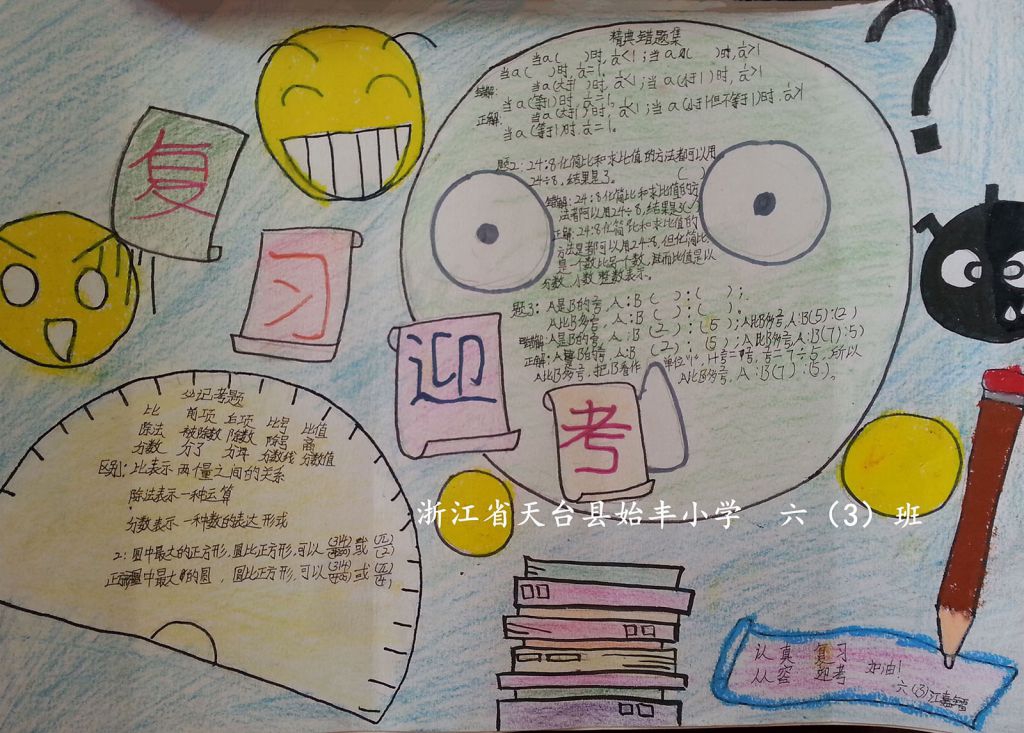 精典错题集
当a(  )时, 1/a<1 ;当a  (  )时, 1/a>1
当a(  )时, 1/a=1。
错解: 当a(大于1)时, 1/a<1 ;当a(小于1)时, 1/a>1
当a(等于1)时, 1/a=1。
正解: 当a(大于1)时, 1/a<1 ;当a(小于1但不等于 )时. 1/a>1
当a(等于1)时. 1/a=1。
题2: 24:8化简比和求比值的方法都可以用
24÷8, 结果是3。 (  )
错解: 24:8化简比和求比值的方
法都可以用24÷8, 结果是3(✓)
正解: 24:8化简比和求比值的
方法是都可以用24÷8, 但化简比
是一个数比另一个数, 而比值是以
分数, 小数, 整数表示。
题3: A是B的 , A:B (  ):(  );
A比B多 , A:B (  ):(  )。
错解: A是B的 , A:B (2):(5);A比B多 , A:B(5):(2)
正解: A是B的 , A:B (2):(5);A比B多 , A:B(7):(5)
A比B多 , 把B看作 单位"1", 所以
A比B多 , A:B(7):(5)。
复
习
迎
考
必记考题
比 前项 后项 比号 比值
除法 被除数 除数 除号 商
分数 分子 分母 分数线 分数值
区别: 比表示两个量之间的关系
除法表示一种运算
分数表示一种数的表达形式
2: 圆中最大的正方形, 圆比正方形, 可以(314)/(200)或(π)/(2)
正方形中最大的圆, 圆比正方形, 可以(314)/(400)或(π)/(4)
浙江省天台县始丰小学 六(3)班
认真 复习
从容 迎考 加油!
六(3)江嘉
?